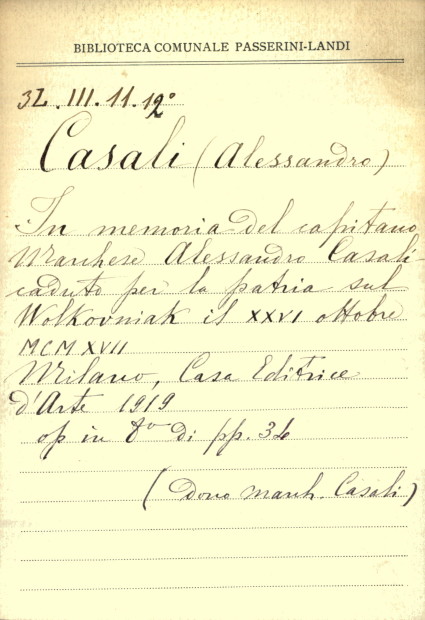 BIBLIOTECA COMUNALE PASSERINI-LANDI
3Z.III.11.12°
Casali (Alessandro)
In memoria del capitano
Marchese Alessandro Casali
caduto per la patria sul
Wolkovniak il XXVI ottobre
MCMXVII
Milano, Casa Editrice
d'Arte 1919
op in 8vo di pp. 36
(Dono march. Casali)